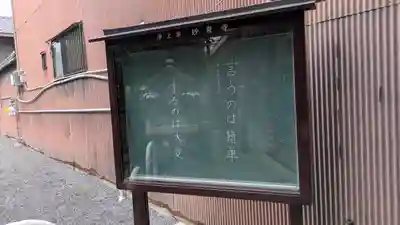 浄土宗 妙覚寺
言うのは簡単
するのは大変